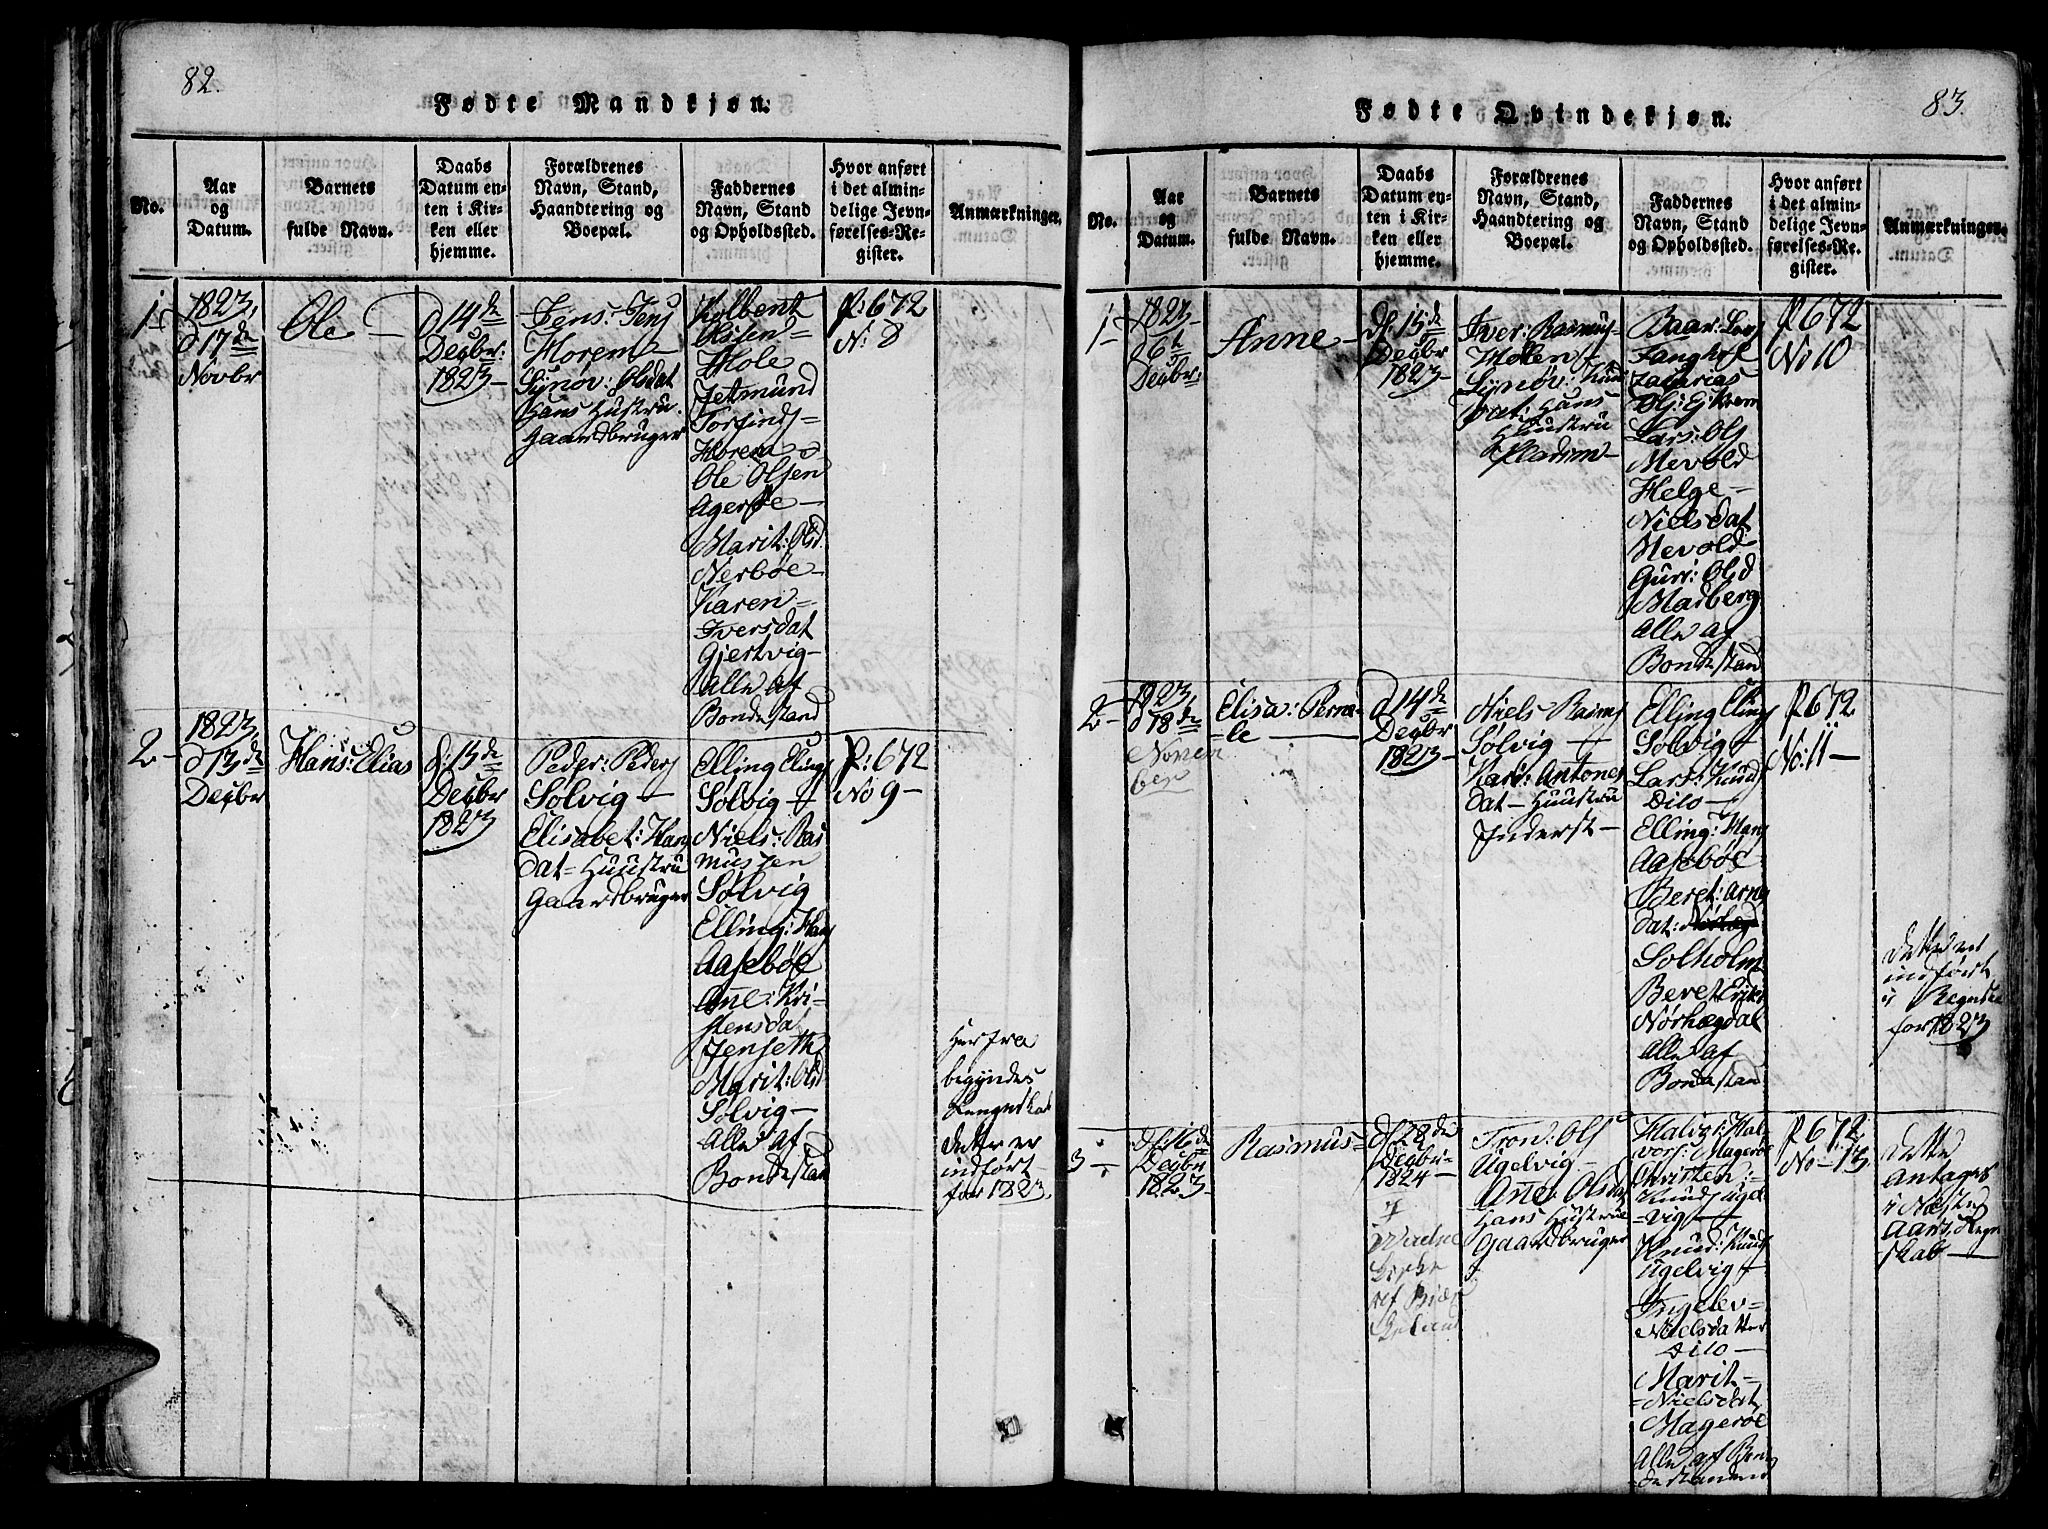 82.
Fødte Mandkjøn.
No.
Aar
og
Datum.
Barnets
fulde Navn.
Daabs
Datum en-
ten i Kir-
ken eller
hjemme.
Forældrenes
Navn, Stand,
Haandtering og
Boepæl.
Faddernes
Navn, Stand
og Opholdssted.
Hvor anført
i det almin-
delige Jevn-
førelses-Re-
gister.
Anmærkninger.
1
1823,
d 17de
Novbr
Ole
d 14de
Decbr:
1823
Jens: Jens
Horem
Synøv: Olsdat
Hans Hustru.
Gaardbruger
Kolbent
Olssen
Hole
Jetmund
Torfinds
Horem
Ole Olsen
Agerøe
Marit: Olsd
Nerbøe
Karen
Iversdat
Gjertvig
Alle af
Bondestand
P: 672
N: 8
2
1823,
d 13de
Decbr
Hans: Elias
d: 15de
Decbr
1823
Peder: Peders
Solvig
Elisabet: Hans
dat Huustru
Gaardbruger
Elling Elings
Solvig
Niels: Ras
mussen
Solvig
Elling: Hans
Aasebøe
Ane: Kri-
stensdat
Jenseth
Marit: Olsd
Solvig
Alle af
Bondestand
P: 672
No 9
Her fra
begyndes
Regnskab
dette er
indført
for 1823.
83.
Fødte Qvindekjøn.
No.
Aar
og
Datum.
Barnets
fulde Navn.
Daabs
Datum en-
ten i Kir-
ken eller
hjemme.
Forældrenes
Navn, Stand,
Haandtering og
Boepæl.
Faddernes
Navn, Stand
og Opholdssted.
Hvor anført
i det almin-
delige Jevn-
førelses-Re-
gister.
Anmærkninger.
1
1823
d 6te
Decbr:
Anne
d: 15de
Decbr
1823
Iver: Rasmus
Holen
Synøv: Knud
dat: Hans
Huustru
Baar: Lars
Tanghol
Zakarias
Ols: Ejkrem
Lars: Ols
Mevold
Helge
Nielsdat
Mevold
Guri: Olsd
Marberg
Alle af
Bondestand
P 672
No 10
2
1823,
d 18de
Novem
ber
Elisa: Perne-
le
d 14de
Decbr
1823
Niels Rasms
Solvig
Kari: Antones
dat Huustru
Inderst
Elling Elings
Solvig
Lars: Knud
Dito
Elling: Hans
Aasebøe
Beret: Arns
dat:
Solholm
Beret Eriks
Nørhægdal
Alle af
Bondestand
P 672
No: 11
dette er
indført
i Regnskab
for 1823
3
d: 16de
Decbr
1823
Rasmus
d 28de
Decbr
1824
Tron: Ols
Ugelvig
Ane Olsdat
Hans Hustrue
Gaardbruger
Halvor: Hal-
vors: Magerøe
Christen:
Knuds Ugel
vig
Knud: Knuds
Ugelvig
Ingelev
Nielsdatter
Dito
Marit
Nielsdat
Magerøe
Alle af Bon
destanden
P 672
No 13
dette
Antages
i Næste
Aars Regn
skab